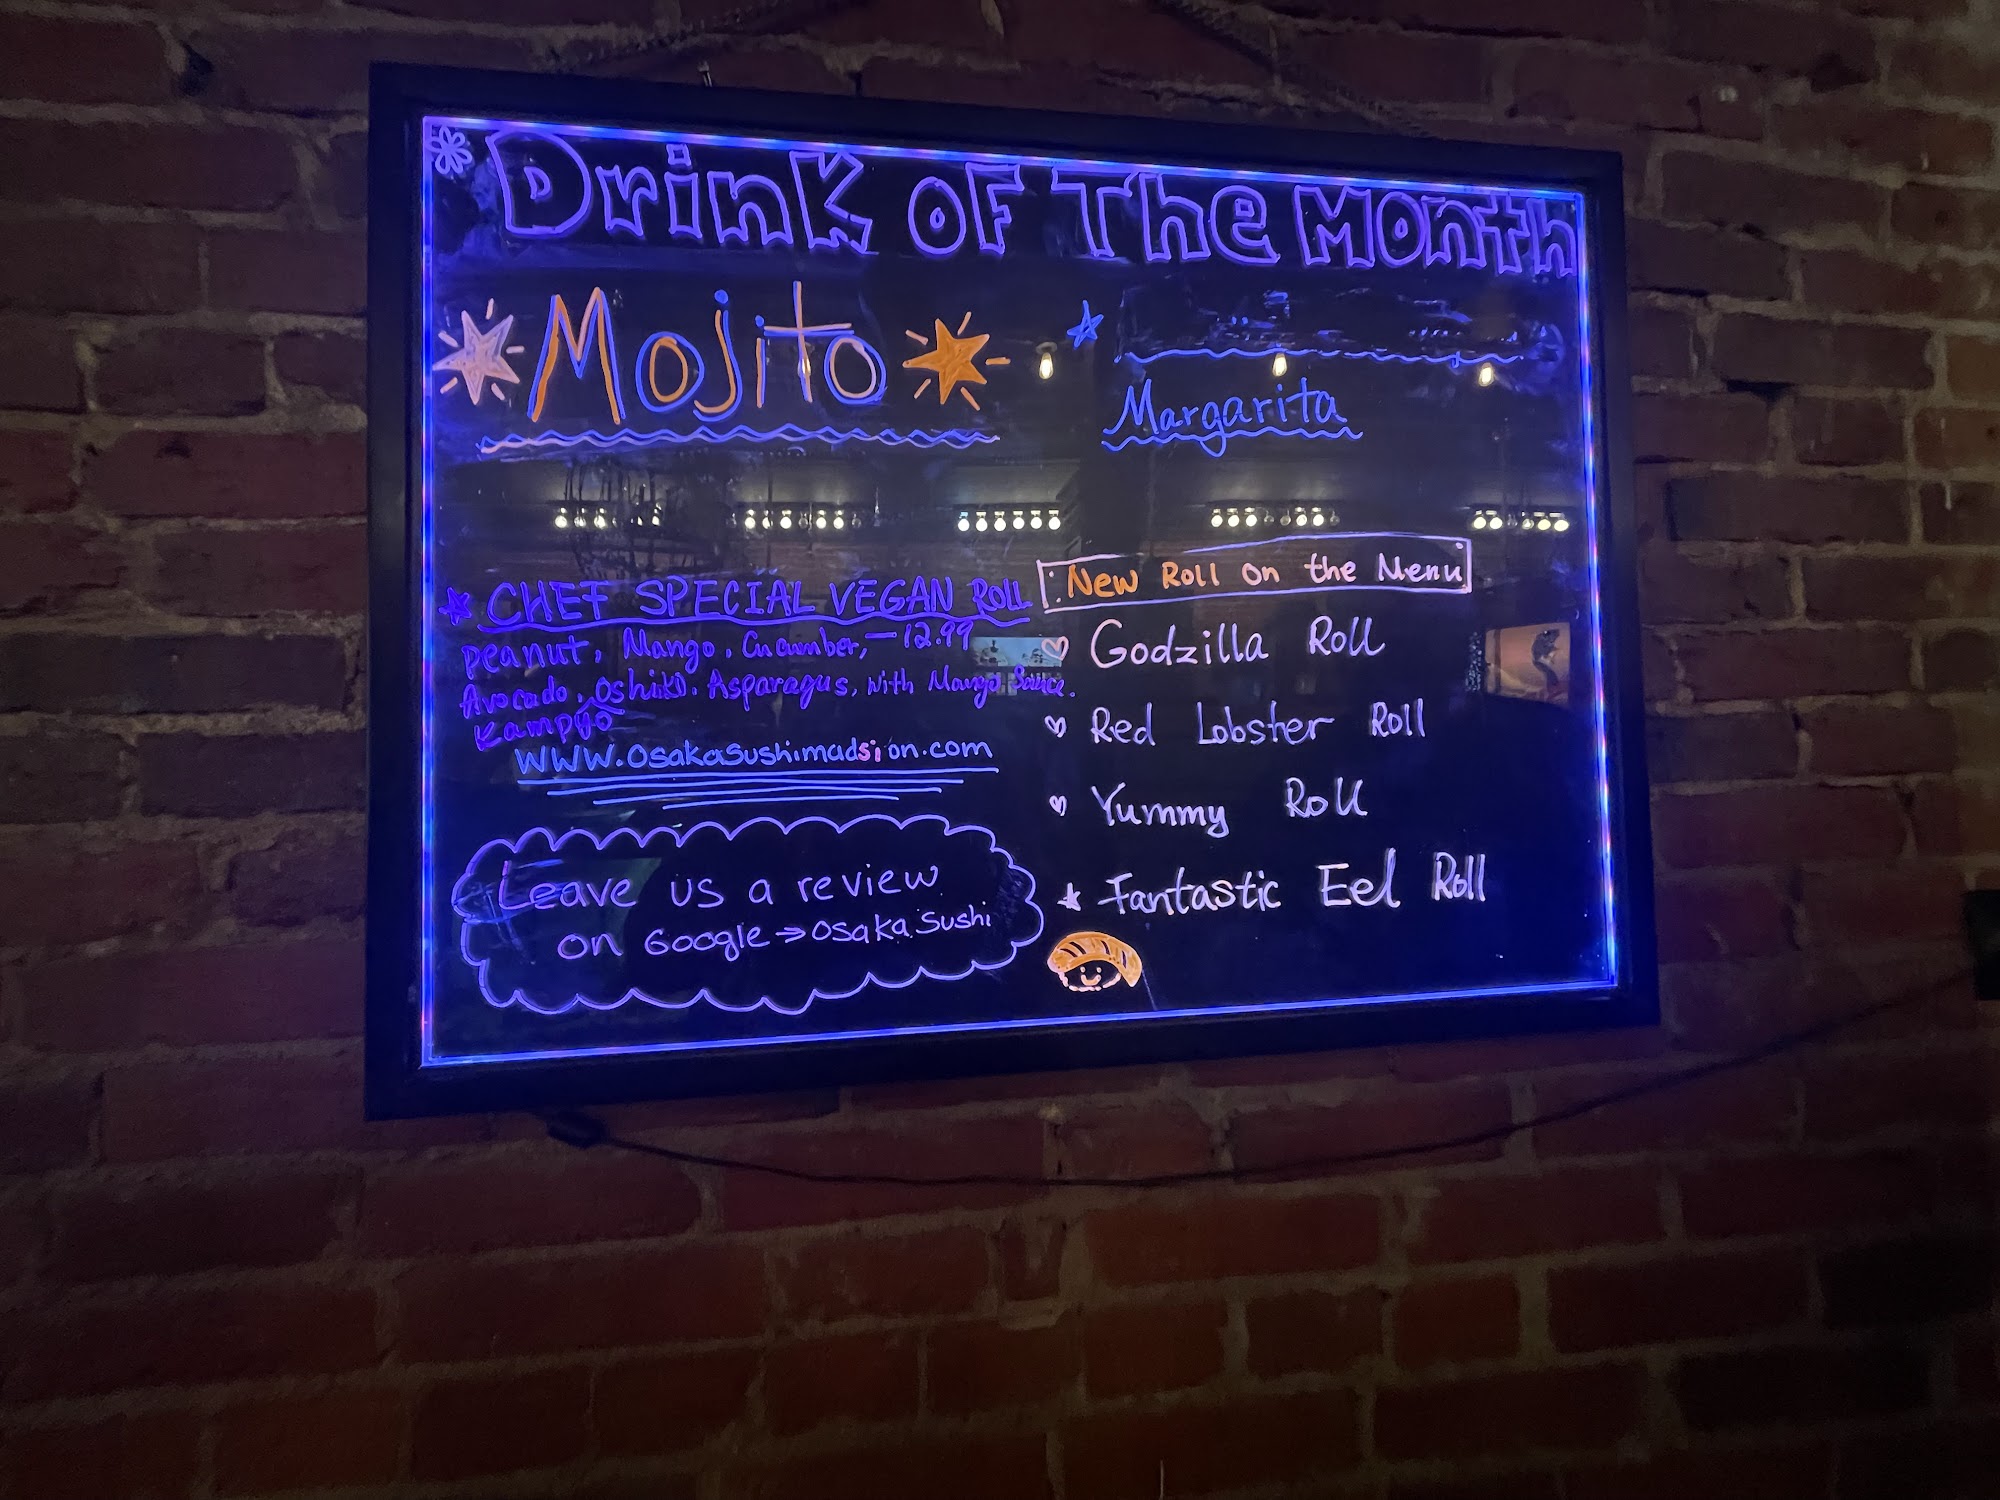 Drink Of The Month
Mojito
Margarita
CHEF SPECIAL VEGAN ROLL
peanut, Mango, Cucumber, — 12.99
Avocado, Oshiko, Asparagus, with Mango Sauce.
Kampyo
WWW.osakasushimadsion.com
Leave us a review
on Google → Osaka Sushi
New Roll on the Menu
Godzilla Roll
Red Lobster Roll
Yummy Roll
Fantastic Eel Roll